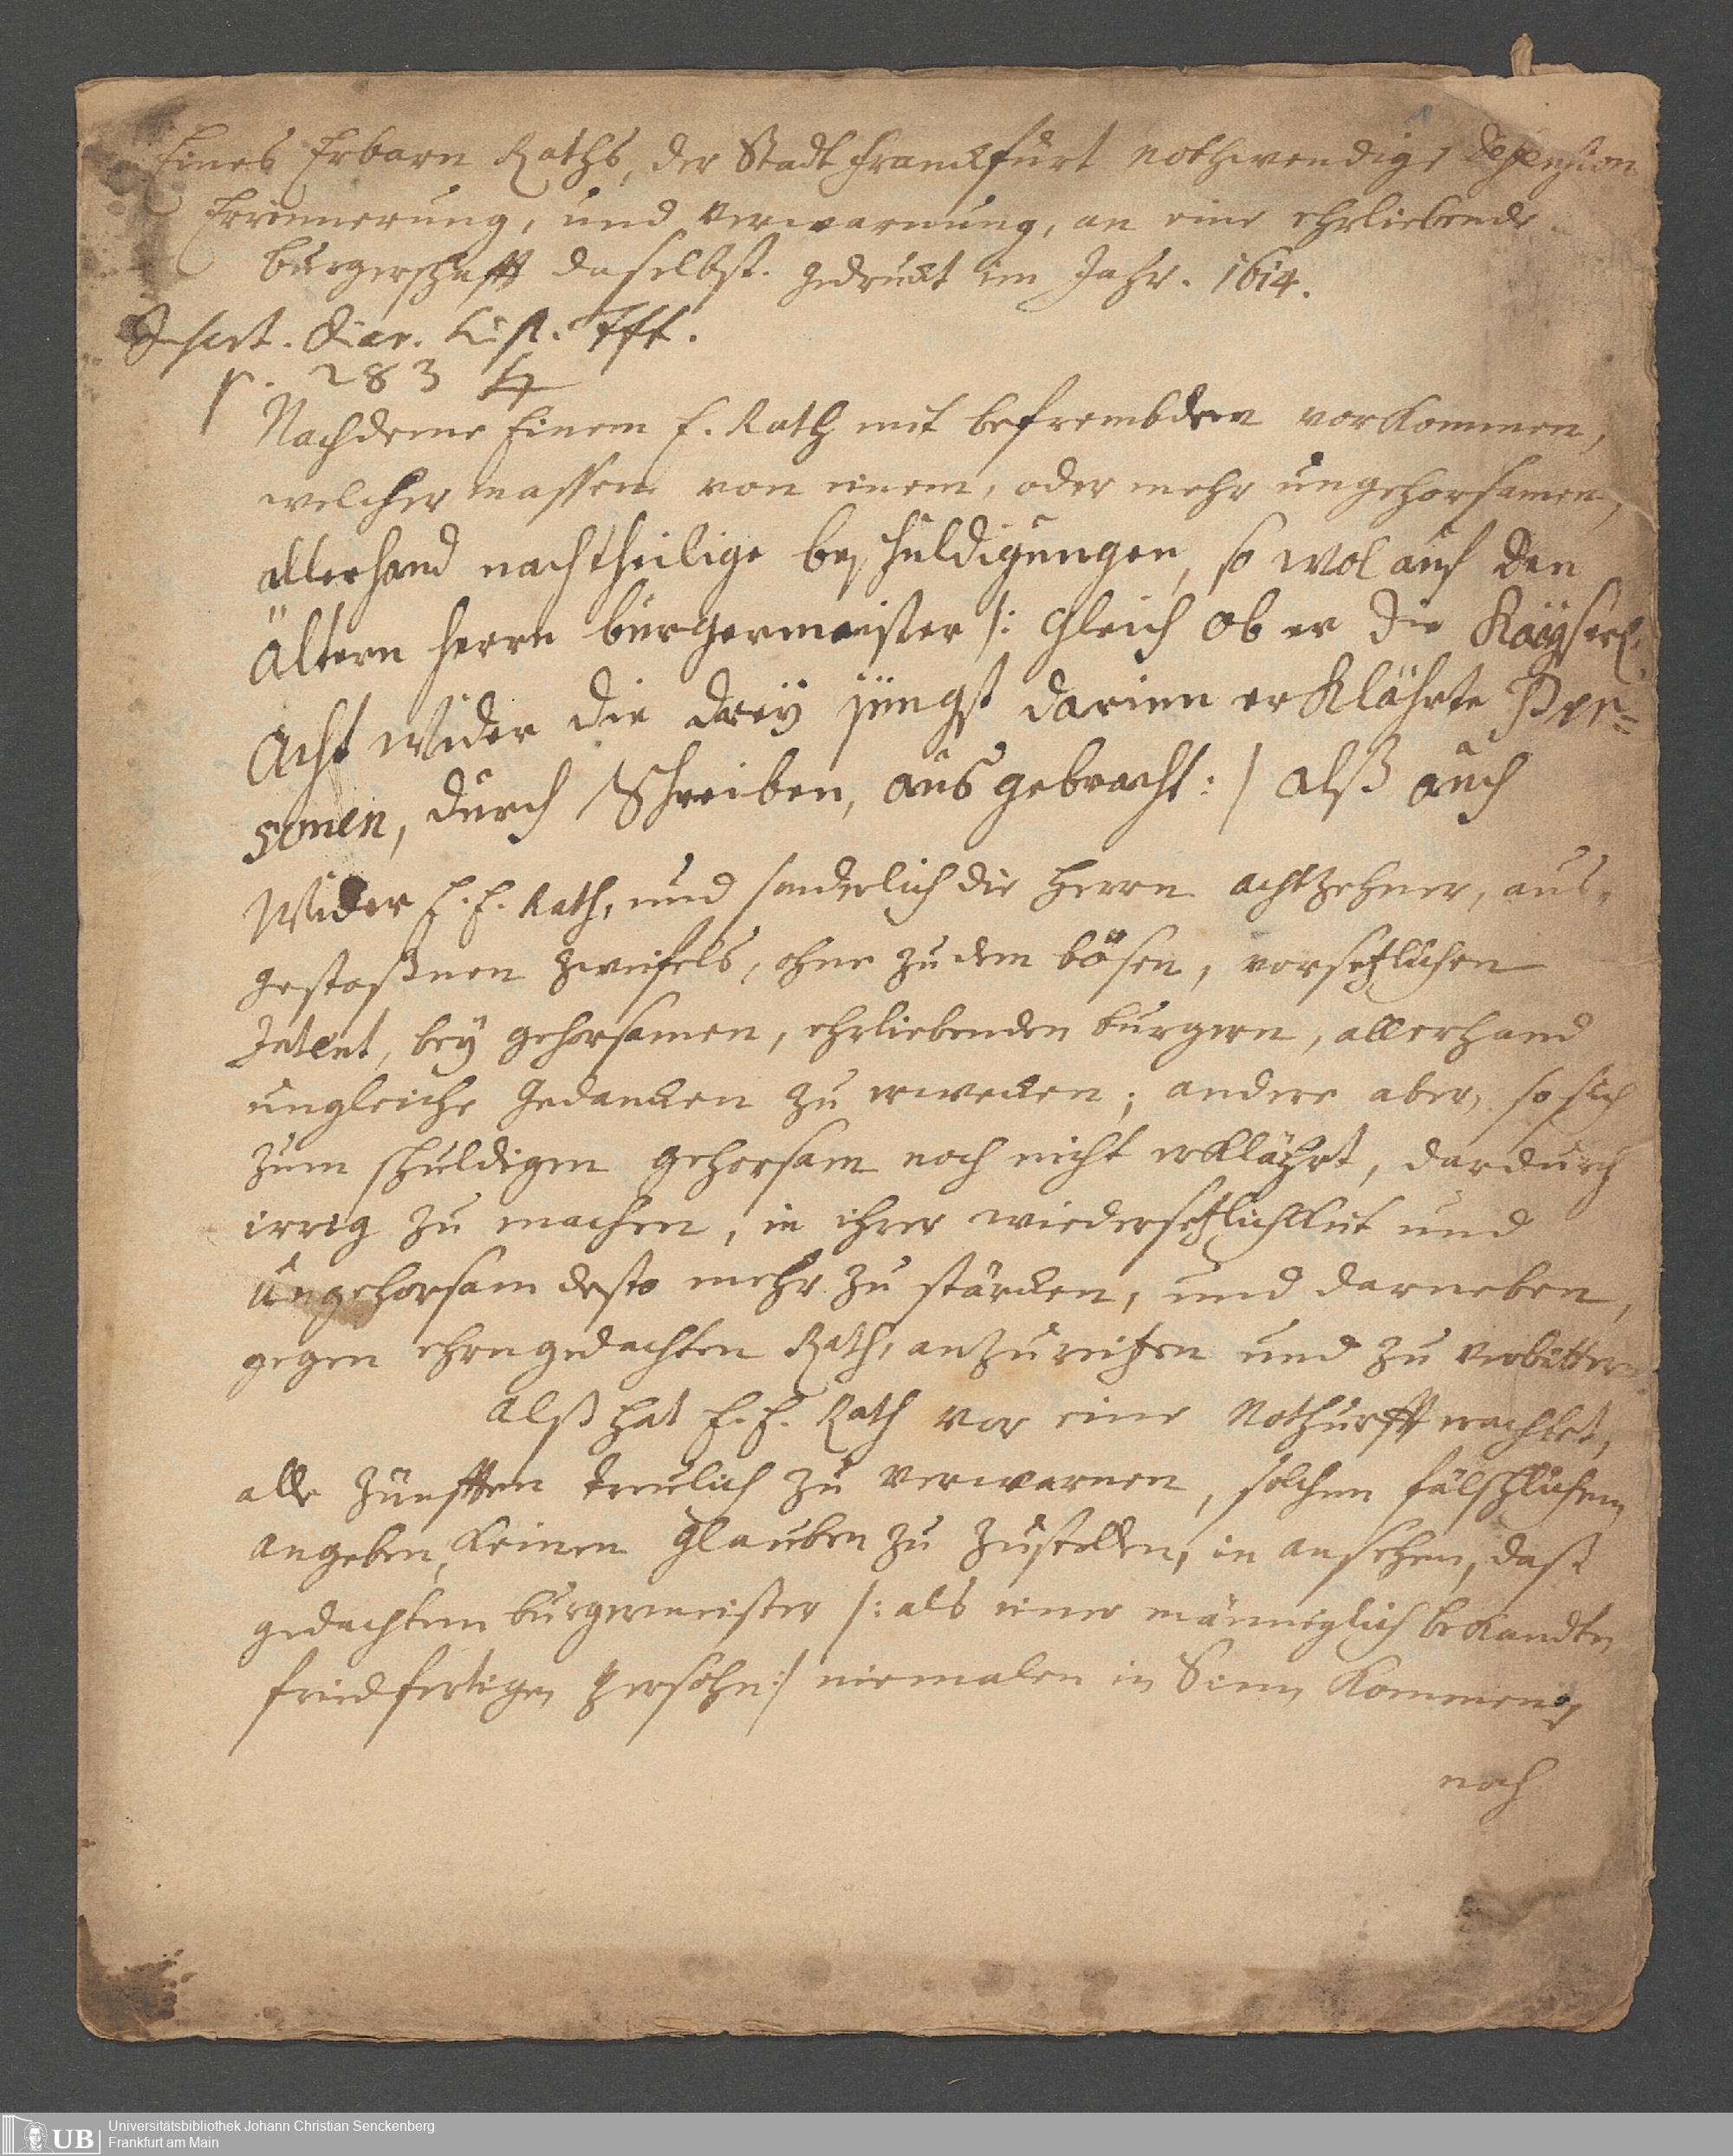 Eines Erbarn Raths, der Stadt Franckfurt nothwendige Defension
Errinnerung, und Verwarnung, an eine ehrliebende
burgerschafft daselbst. gedruckt im Jahr. 1614.
Insert. Diar. hist. Fft.
p. 283
Nachdeme Einem E. Rath mit befrembden vorkommen,
welcher massen von einem, oder mehr ungehorsamen,
allerhand nachtheilige beschuldigungen, so wol auf den
ältern herrn burgermeister /: gleich ob er die Kaÿserl.
Acht wider die dreÿ jüngst darinn erklährte Per=
sonen, durch Schreiben, ausgebracht :/ alß auch
Wider E. E. Rath, und sonderlich die Herrn Achtzehner, aus-
gestoßnen zweifels, ohne zu dem bösen, vorsetzlichen
Intent, beÿ gehorsamen, ehrliebenden burgern, allerhand
ungleiche gedancken zu erwecken; andere aber, so sich
zum schuldigen gehorsam noch nicht erklährt, dardurch
irrig zu machen, in ihrer wiedersetzlichkeit und
Ungehorsam desto mehr zu stärcken, und darneben,
gegen ehrngedachten Rath, anzureitzen und zu verbittern.
Alß hat E. E. Rath vor eine Nothurfft erachtet,
alle Zünfften treulich zu verwarnen, solchen fälschlichem
angeben, keinen glauben zu zustellen, in ansehen, daß
gedachtem burgermeister /: als einer männiglich bekandten
friedfertigen Persohn :/ niemalen in Sinn kommen,
noch
Universitätsbibliothek Johann Christian Senckenberg
UB Frankfurt am Main